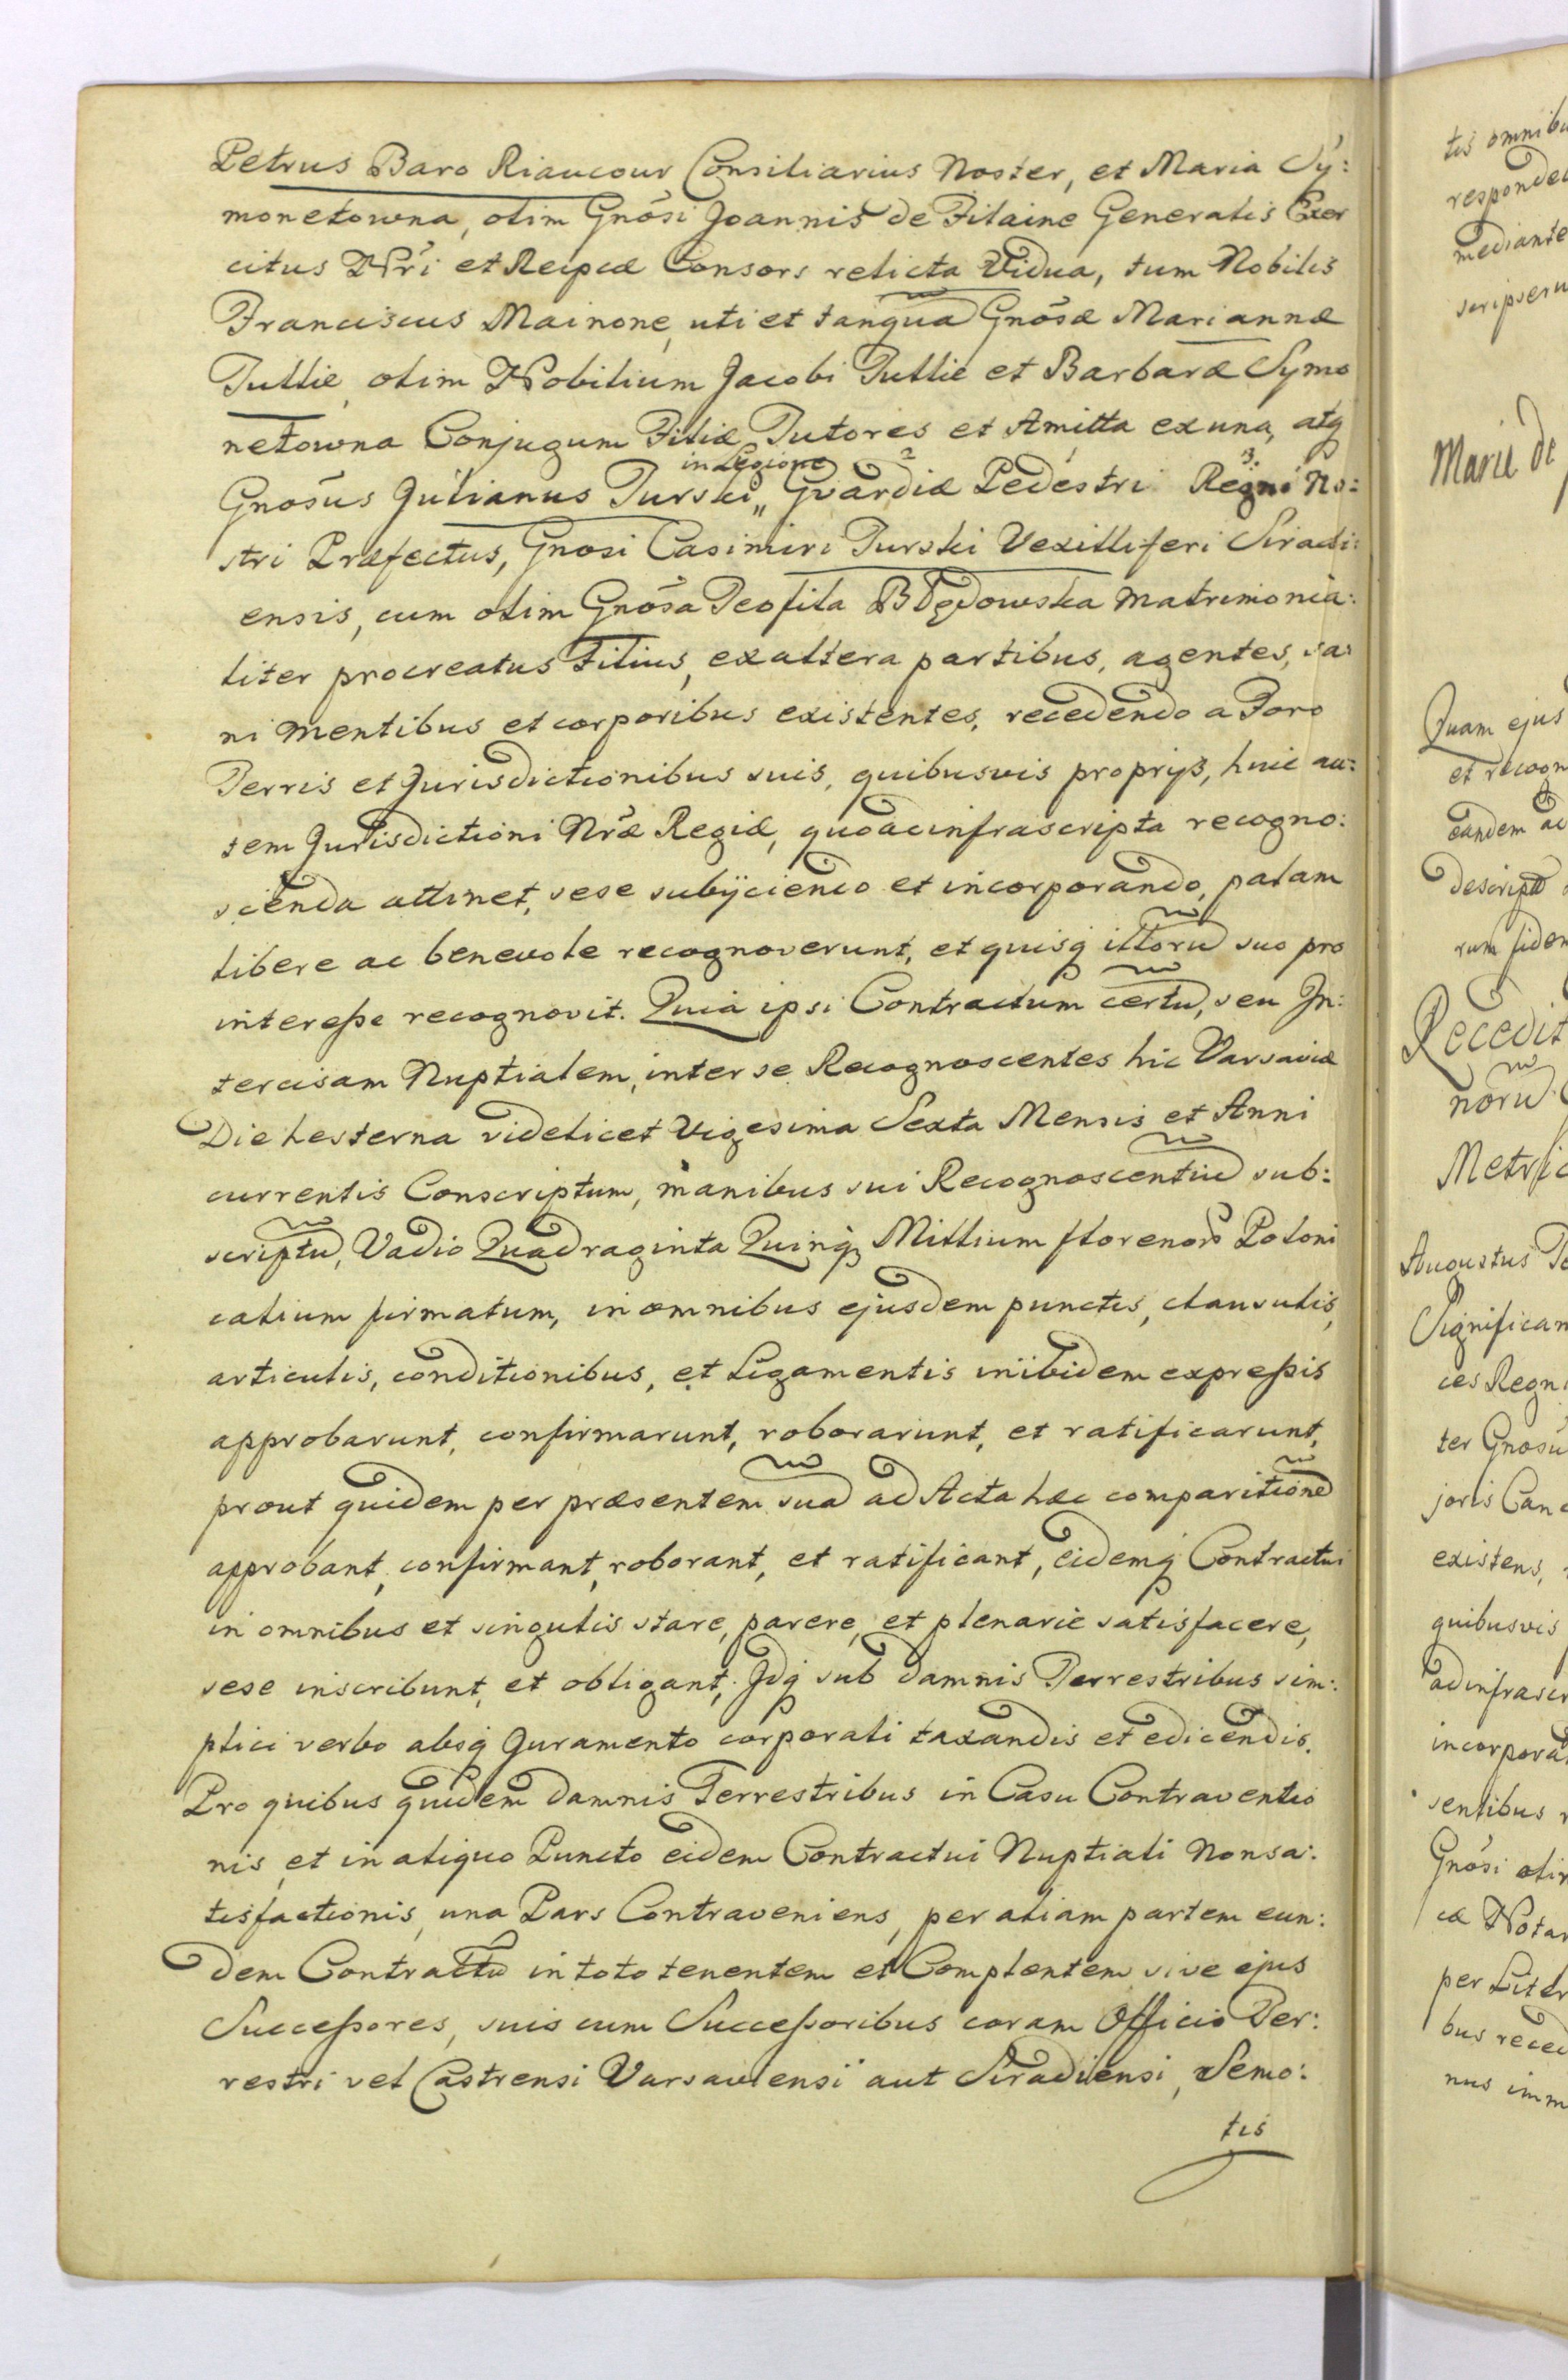 Petrus Baro Riaucour Consiliarius Noster, et Maria Sy:
monetowna, olim Gnosi Joannis de Filaine Generalis Exer
citus Nri et Reipcæ Consors relicta Vidua, tum Nobilis
Franciscus Mainone, uti et tanqua Gnosæ Mariannæ
Tullie, olim Nobilium Jacobi Tullie et Barbaræ Symo
netowna Conjugum Filiæ Tutores et Amitta ex una, atq
in Legione 2 3.
Gnosus Julianus Turski,, Gvardiæ Pedestri Regni No:
stri Præfectus, Gnosi Casimiri Turski Vexilliferi Siradi:
ensis, cum olim Gnosa Teofila Błędowska matrimonia:
liter procreatus Filius, ex altera partibus, agentes, sa:
ni mentibus et corporibus existentes, recedendo a Foro
Terris et Jurisdictionibus suis, quibusvis proprijs, huic au:
tem Jurisdictioni Nræ Regiæ, quoad infrascripta recogno:
scenda attinet, sese subijciendo et incorporando, palam
libere ac benevole recognoverunt, et quisq illoru suo pro
interesse recognovit. Quia ipsi Contractum certu, seu In:
tercisam Nuptialem, inter se Recognoscentes hic Varsaviæ
Die hesterna videlicet Vigesima Sexta Mensis et Anni
currentis Conscriptum, manibus sui Recognoscentiu sub:
scriptu, Vadio Quadraginta Quinq Millium florenor Poloni
calium firmatum, in omnibus ejusdem punctis, clausulis,
articulis, conditionibus, et Ligamentis inibidem expressis
approbarunt, confirmarunt, roborarunt, et ratificarunt,
prout quidem per præsentem sua ad Acta hæc comparitione
approbant, confirmant, roborant, et ratificant, eidemq Contractui
in omnibus et singulis stare, parere, et plenarie satisfacere,
sese inscribunt, et obligant, Idq sub damnis Terrestribus sim:
plici verbo absq Juramento corporali taxandis et edicendis.
Pro quibus quidem damnis Terrestribus in Casu Contraventio
nis, et in aliquo Puncto eidem Contractui Nuptiali non sa:
tisfactionis, una Pars Contraveniens, per aliam partem eun:
dem Contractu in toto tenentem et Complentem sive ejus
Successores, suis cum Successoribus coram Officio Ter:
restri vel Castrensi Varsaviensi aut Siradiensi, Semo:
tis
tis omnibu
responde
mediante
scripseru
Marie de
Quam ejus
et recogn
eandem ac
descripto
rum fidem
Recedit
noru
Metric
Augustus
Significam
ces Regni
ter Gnosu
joris Canc
existens,
quibusvis
ad infrascr
incorpora
sentibus
Gnosi olim
cæ Notar
per Litt
bus reced
nus imm